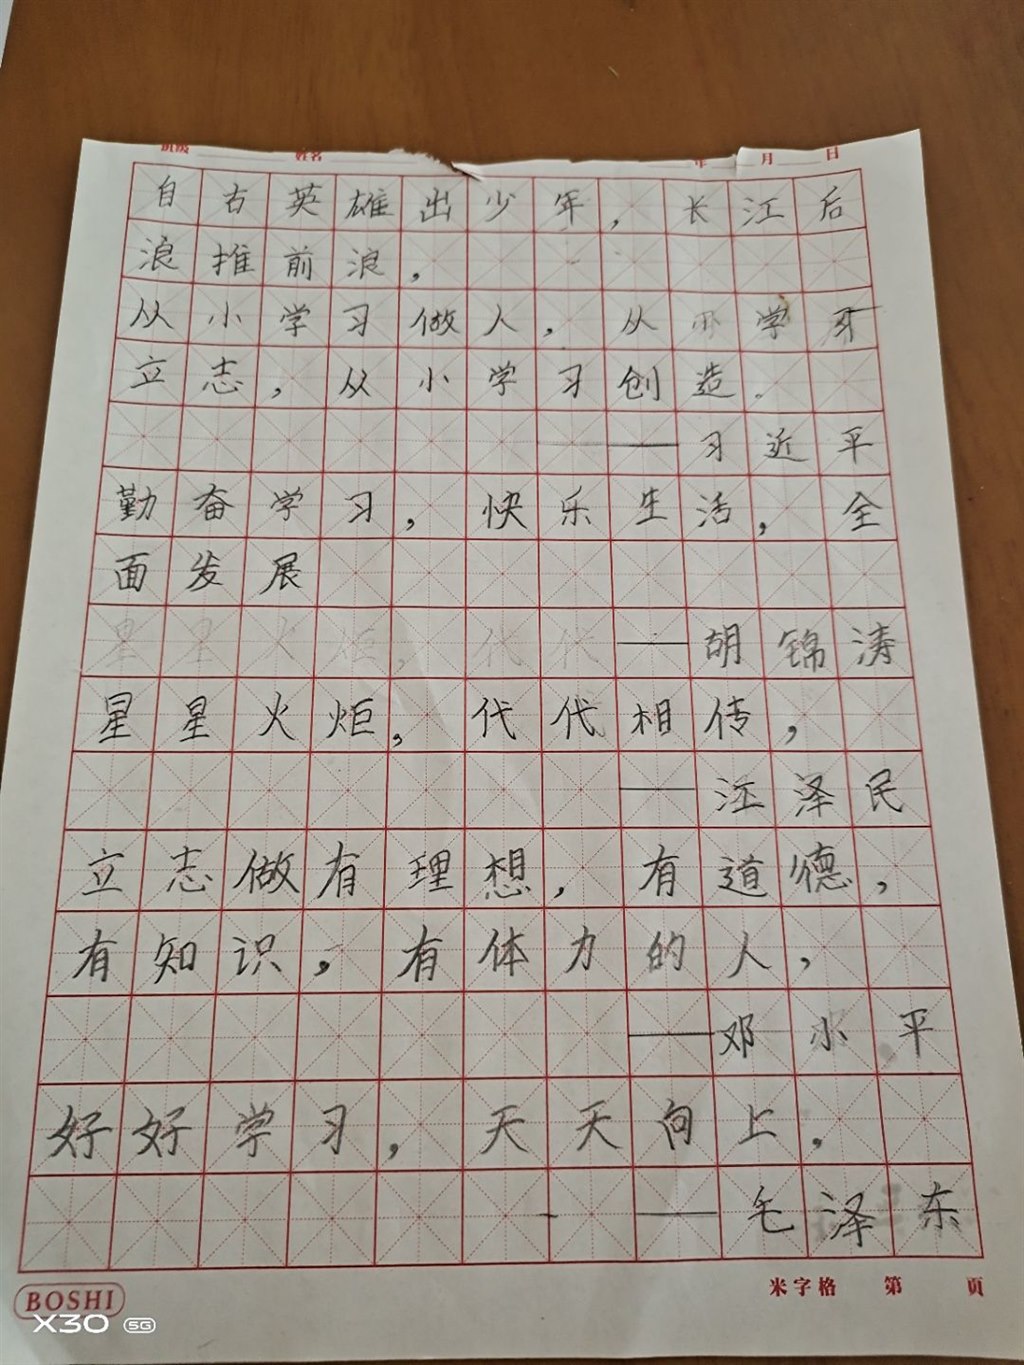 班级 姓名 年 月 日
自古英雄出少年，长江后
浪推前浪，
从小学习做人，从小学习
立志，从小学习创造。
——习近平
勤奋学习，快乐生活，全
面发展
星星火炬，代代——胡锦涛
星星火炬，代代相传，
——江泽民
立志做有理想，有道德，
有知识，有体力的人，
——邓小平
好好学习，天天向上，
——毛泽东
米字格 第 页
BOSHI
X30 5G